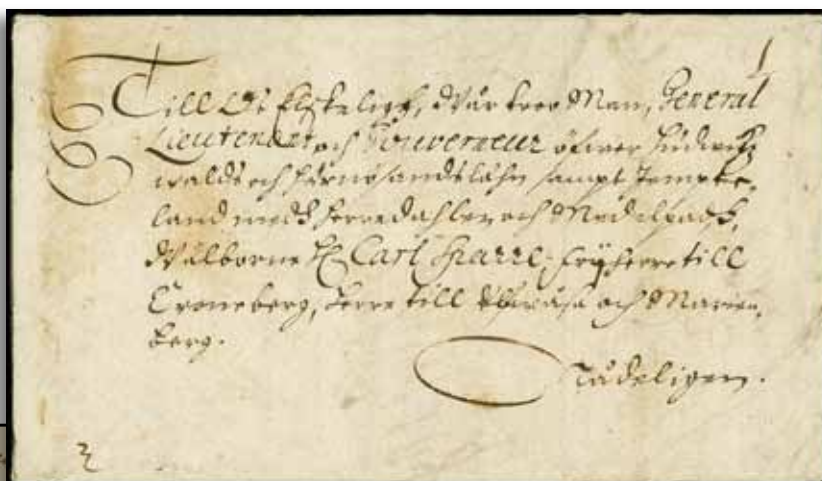 Till Oß Elskeligh, Wår troo Man, General
Lieutenant och Gouverneur öfwer Hudwigz
walds och Hernösandz lähn sampt Jempte-
land medh Herredahlen och Medelpadh,
Wälborne H. Carl Sparre, Fryherre till
Croneberg, Herre till och Marien-
berg.
Nådeligen.